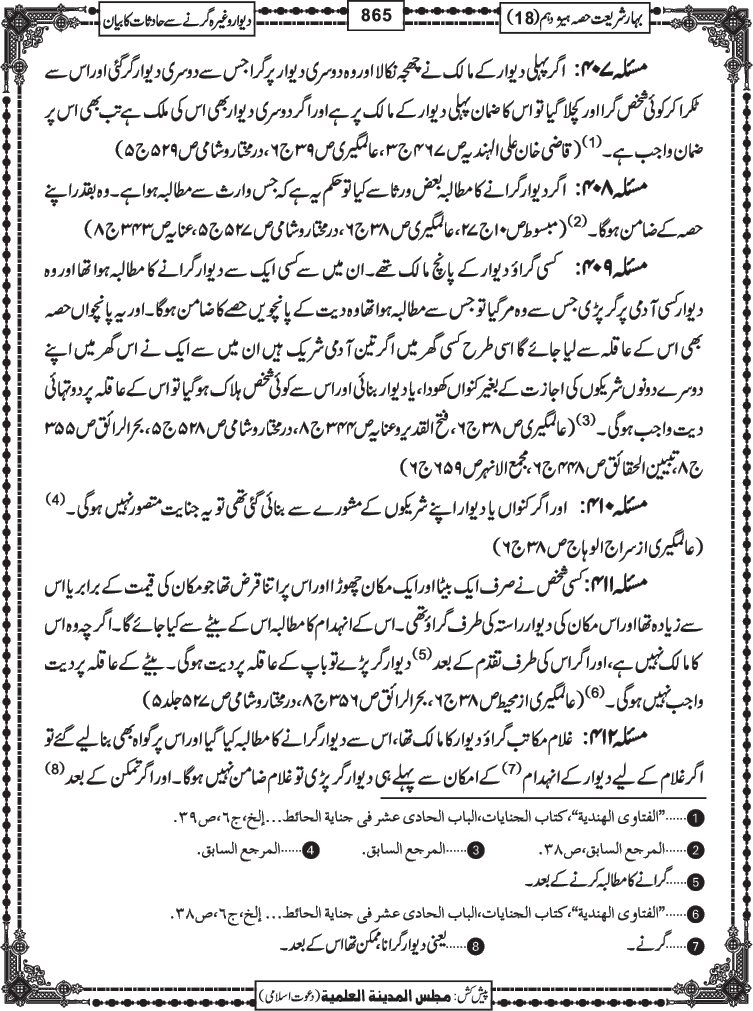 بہارِشریعت حصہ ہیژدہم (18)
865
دیوار وغیرہ گرنے سے حادثات کا بیان
مسئلہ ۴۰۷: اگر پہلی دیوار کے مالک نے چھجہ نکالا اور وہ دوسری دیوار پر گرا جس سے دوسری دیوار گر گئی اور اس سے
ٹکرا کر کوئی شخص گرا اور کچلا گیا تو اس کا ضمان پہلی دیوار کے مالک پر ہے اور اگر دوسری دیوار بھی اس کی ملک ہے تب بھی اس پر
ضمان واجب ہے۔(1) (قاضی خان علی الہندیہ ص ۴۶۷ ج ۳، عالمگیری ص ۳۹ ج ۶، درمختار و شامی ص ۵۲۹ ج ۵)
مسئلہ ۴۰۸: اگر دیوار گرانے کا مطالبہ بعض ورثا سے کیا تو حکم یہ ہے کہ جس وارث سے مطالبہ ہوا ہے۔ وہ بقدر اپنے
حصہ کے ضامن ہوگا۔(2) (مبسوط ص ۱۰ ج ۲۷، عالمگیری ص ۳۸ ج ۶، درمختار و شامی ص ۵۲۷ ج ۵، عنایہ ص ۳۴۳ ج ۸)
مسئلہ ۴۰۹: کسی گراؤ دیوار کے پانچ مالک تھے۔ ان میں سے کسی ایک سے دیوار گرانے کا مطالبہ ہوا تھا اور وہ
دیوار کسی آدمی پر گر پڑی جس سے وہ مر گیا تو جس سے مطالبہ ہوا تھا وہ دیت کے پانچویں حصے کا ضامن ہوگا۔ اور یہ پانچواں حصہ
بھی اس کے عاقلہ سے لیا جائے گا اسی طرح کسی گھر میں اگر تین آدمی شریک ہیں ان میں سے ایک نے اس گھر میں اپنے
دوسرے دونوں شریکوں کی اجازت کے بغیر کنواں کھودا، یا دیوار بنائی اور اس سے کوئی شخص ہلاک ہوگیا تو اس کے عاقلہ پر دو تہائی
دیت واجب ہوگی۔(3) (عالمگیری ص ۳۸ ج ۶، فتح القدیر و عنایہ ص ۳۴۴ ج ۸، درمختار و شامی ص ۵۲۸ ج ۵، بحر الرائق ص ۳۵۵
ج ۸، تبیین الحقائق ص ۴۴۸ ج ۶، مجمع الانہر ص ۶۵۹ ج ۶)
مسئلہ ۴۱۰: اور اگر کنواں یا دیوار اپنے شریکوں کے مشورے سے بنائی گئی تھی تو یہ جنایت متصور نہیں ہوگی۔(4)
(عالمگیری از سراج الوہاج ص ۳۸ ج ۶)
مسئلہ ۴۱۱: کسی شخص نے صرف ایک بیٹا اور ایک مکان چھوڑا اور اس پر اتنا قرض تھا جو مکان کی قیمت کے برابر یا اس
سے زیادہ تھا اور اس مکان کی دیوار راستہ کی طرف گراؤ تھی۔ اس کے انہدام کا مطالبہ اس کے بیٹے سے کیا جائے گا۔ اگرچہ وہ اس
کا مالک نہیں ہے، اور اگر اس کی طرف تقدم کے بعد(5) دیوار گر پڑے تو باپ کے عاقلہ پر دیت ہوگی۔ بیٹے کے عاقلہ پر دیت
واجب نہیں ہوگی۔(6) (عالمگیری از محیط ص ۳۸ ج ۶، بحر الرائق ص ۳۵۶ ج ۸، درمختار و شامی ص ۵۲۷ جلد ۵)
مسئلہ ۴۱۲: غلام مکاتب گراؤ دیوار کا مالک تھا، اس سے دیوار گرانے کا مطالبہ کیا گیا اور اس پر گواہ بھی بنا لیے گئے تو
اگر غلام کے لیے دیوار کے انہدام(7) کے امکان سے پہلے ہی دیوار گر پڑی تو غلام ضامن نہیں ہوگا۔ اور اگر تمکن کے بعد(8)
1 ......"الفتاوی الهندیة"، کتاب الجنایات، الباب الحادی عشر فی جنایة الحائط...إلخ، ج۶، ص۳۹.
2 ......المرجع السابق، ص۳۸. 3 ......المرجع السابق. 4 ......المرجع السابق.
5 ......گرانے کا مطالبہ کرنے کے بعد۔
6 ......"الفتاوی الهندیة"، کتاب الجنایات، الباب الحادی عشر فی جنایة الحائط...إلخ، ج۶، ص۳۸.
7 ......گرنے۔ 8 ......یعنی دیوار گرانا ممکن تھا اس کے بعد۔
پیش کش: مجلس المدینة العلمیة (دعوت اسلامی)